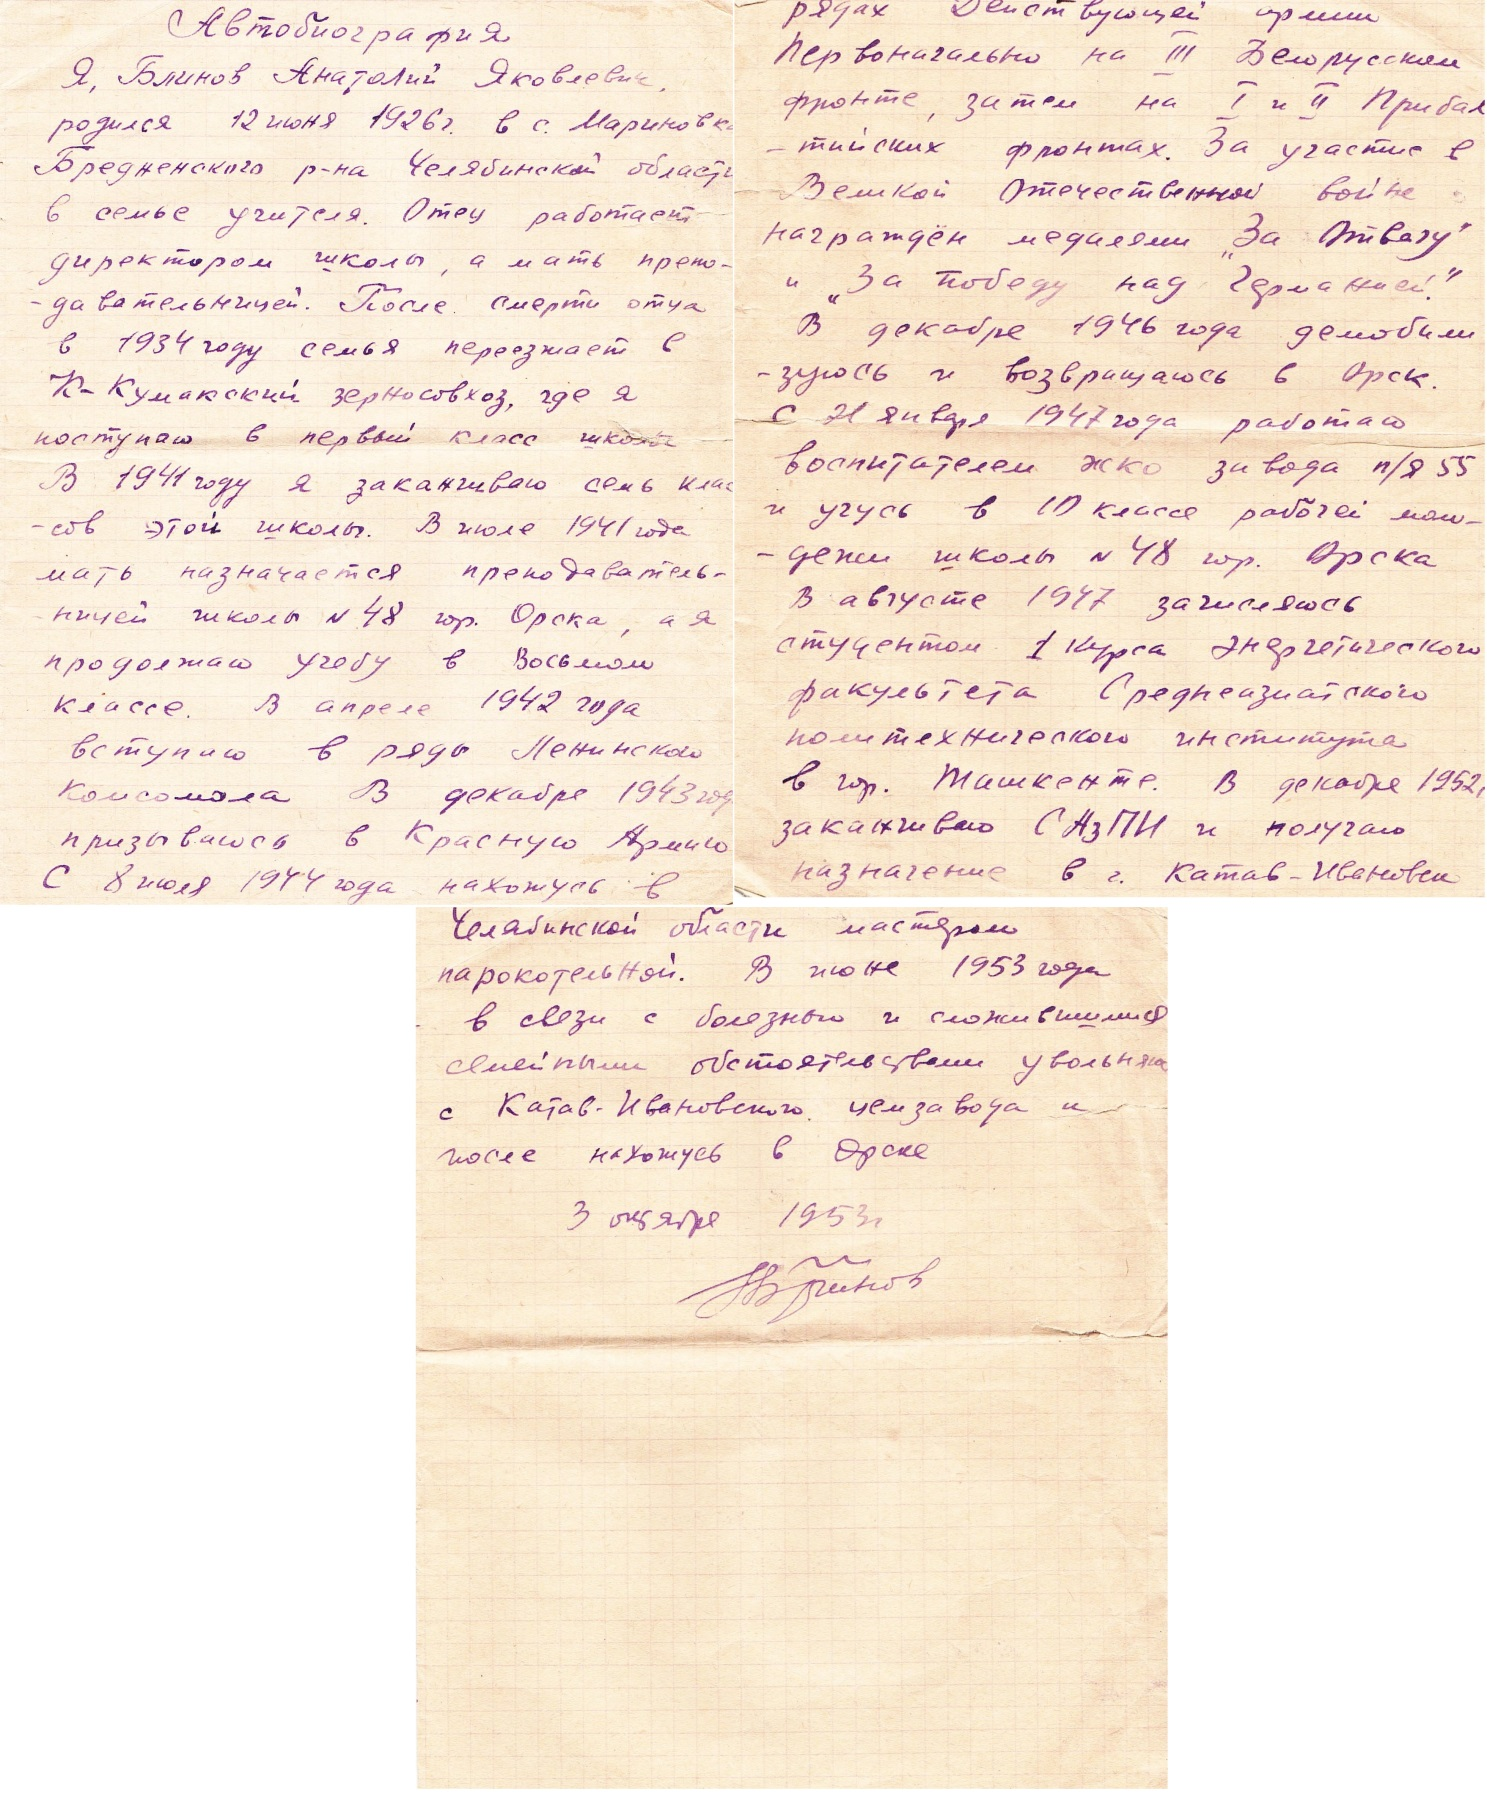 Автобиография
Я, Блинов Анатолий Яковлевич,
родился 12 июня 1926 г. в с. Мариновка
Бредненского р-на Челябинской области
в семье учителя. Отец работает
директором школы, а мать препо-
-давательницей. После смерти отца
в 1934 году семья переезжает в
К-Кумакский зерносовхоз, где я
поступаю в первый класс школы
В 1941 году я заканчиваю семь клас
-сов этой школы. В июле 1941 года
мать назначается преподаватель-
-ницей школы N 48 гор. Орска, а я
продолжаю учебу в Восьмом
классе. В апреле 1942 года
вступаю в ряды Ленинского
Комсомола В декабре 1943 год
призываюсь в Красную Армию
С 8 июля 1944 года нахожусь в
рядах Действующей армии
Первоначально на III Белорусском
фронте, затем на I и II Прибал
-тийских фронтах. За участие в
Великой Отечественной войне
награждён медалями „За Отвагу"
и „За победу над Германией."
В декабре 1946 года демобили
-зуюсь и возвращаюсь в Орск.
С 21 января 1947 года работаю
воспитателем жко завода п/я 55
и учусь в 10 классе рабочей моло-
-дежи школы N 48 гор. Орска
В августе 1947 зачисляюсь
студентом 1 курса Энергетического
факультета Среднеазиатского
политехнического института
в гор. Ташкенте. В декабре 1952г
заканчиваю САзПИ и получаю
назначение в г. Катав-Ивановск
Челябинской области мастером
парокотельной. В июне 1953 года
в связи с болезнью и сложившимися
семейными обстоятельствами увольняюсь
с Катав-Ивановского цемзавода и
после нахожусь в Орске
3 октября 1953г
Блинов